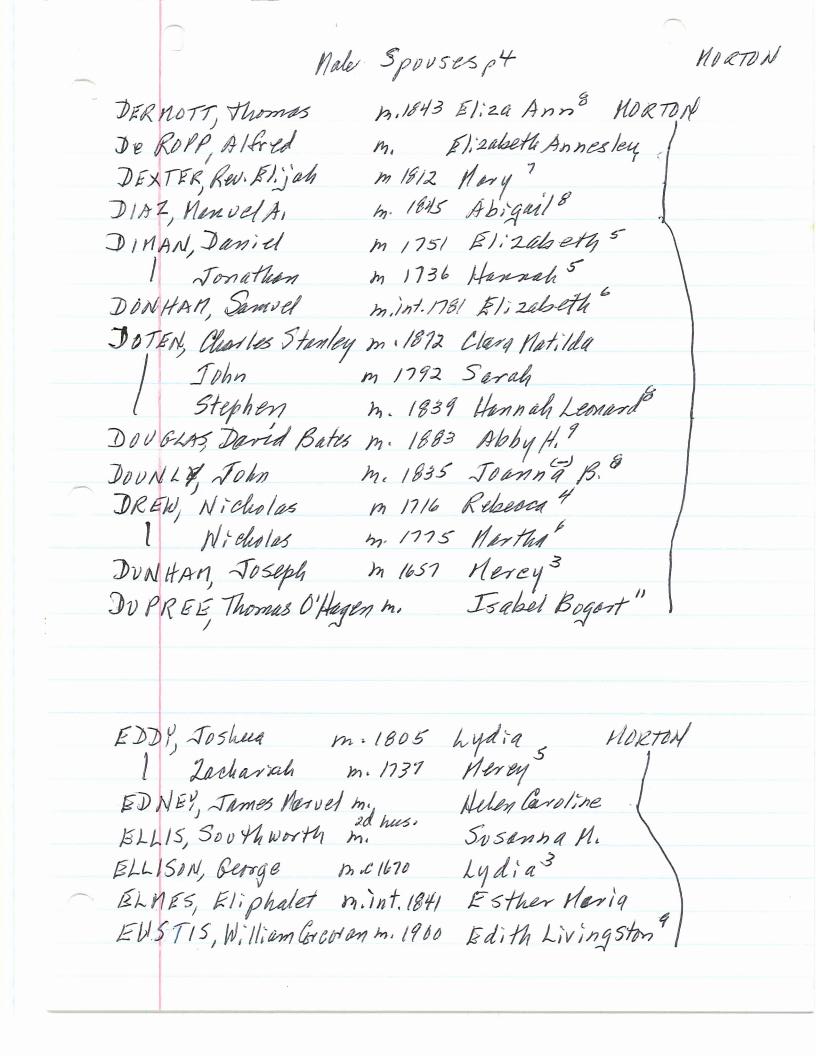 Male Spouses p4 MORTON
DERMOTT, Thomas m.1843 Eliza Ann⁸ MORTON
De ROPP, Alfred m. Elizabeth Annesley
DEXTER, Rev. Elijah m 1812 Mary⁷
DIAZ, Manuel A. m. 1845 Abigail⁸
DIMAN, Daniel m 1751 Elizabeth⁵
Jonathan m 1736 Hannah⁵
DONHAM, Samuel m.int.1781 Elizabeth⁶
DOTEN, Charles Stanley m. 1872 Clara Matilda
John m 1792 Sarah
Stephen m. 1839 Hannah Leonard⁸
DOUGLAS, David Bates m. 1883 Abby H.⁹
DOUNLY, John m. 1835 Joanna(-) B.⁸
DREW, Nicholas m 1716 Rebecca⁴
Nicholas m. 1775 Martha⁶
DUNHAM, Joseph m 1657 Mercy³
DUPREE, Thomas O'Hagen m. Isabel Bogart¹¹
EDDY, Joshua m. 1805 Lydia MORTON
Zachariah m. 1737 Mercy⁵
EDNEY, James Marvel m. Helen Caroline
ELLIS, Southworth m. 2d hus. Susanna M.
ELLISON, George m.c1670 Lydia³
ELMES, Eliphalet m.int.1841 Esther Maria
EUSTIS, William Corcoran m. 1900 Edith Livingston⁹